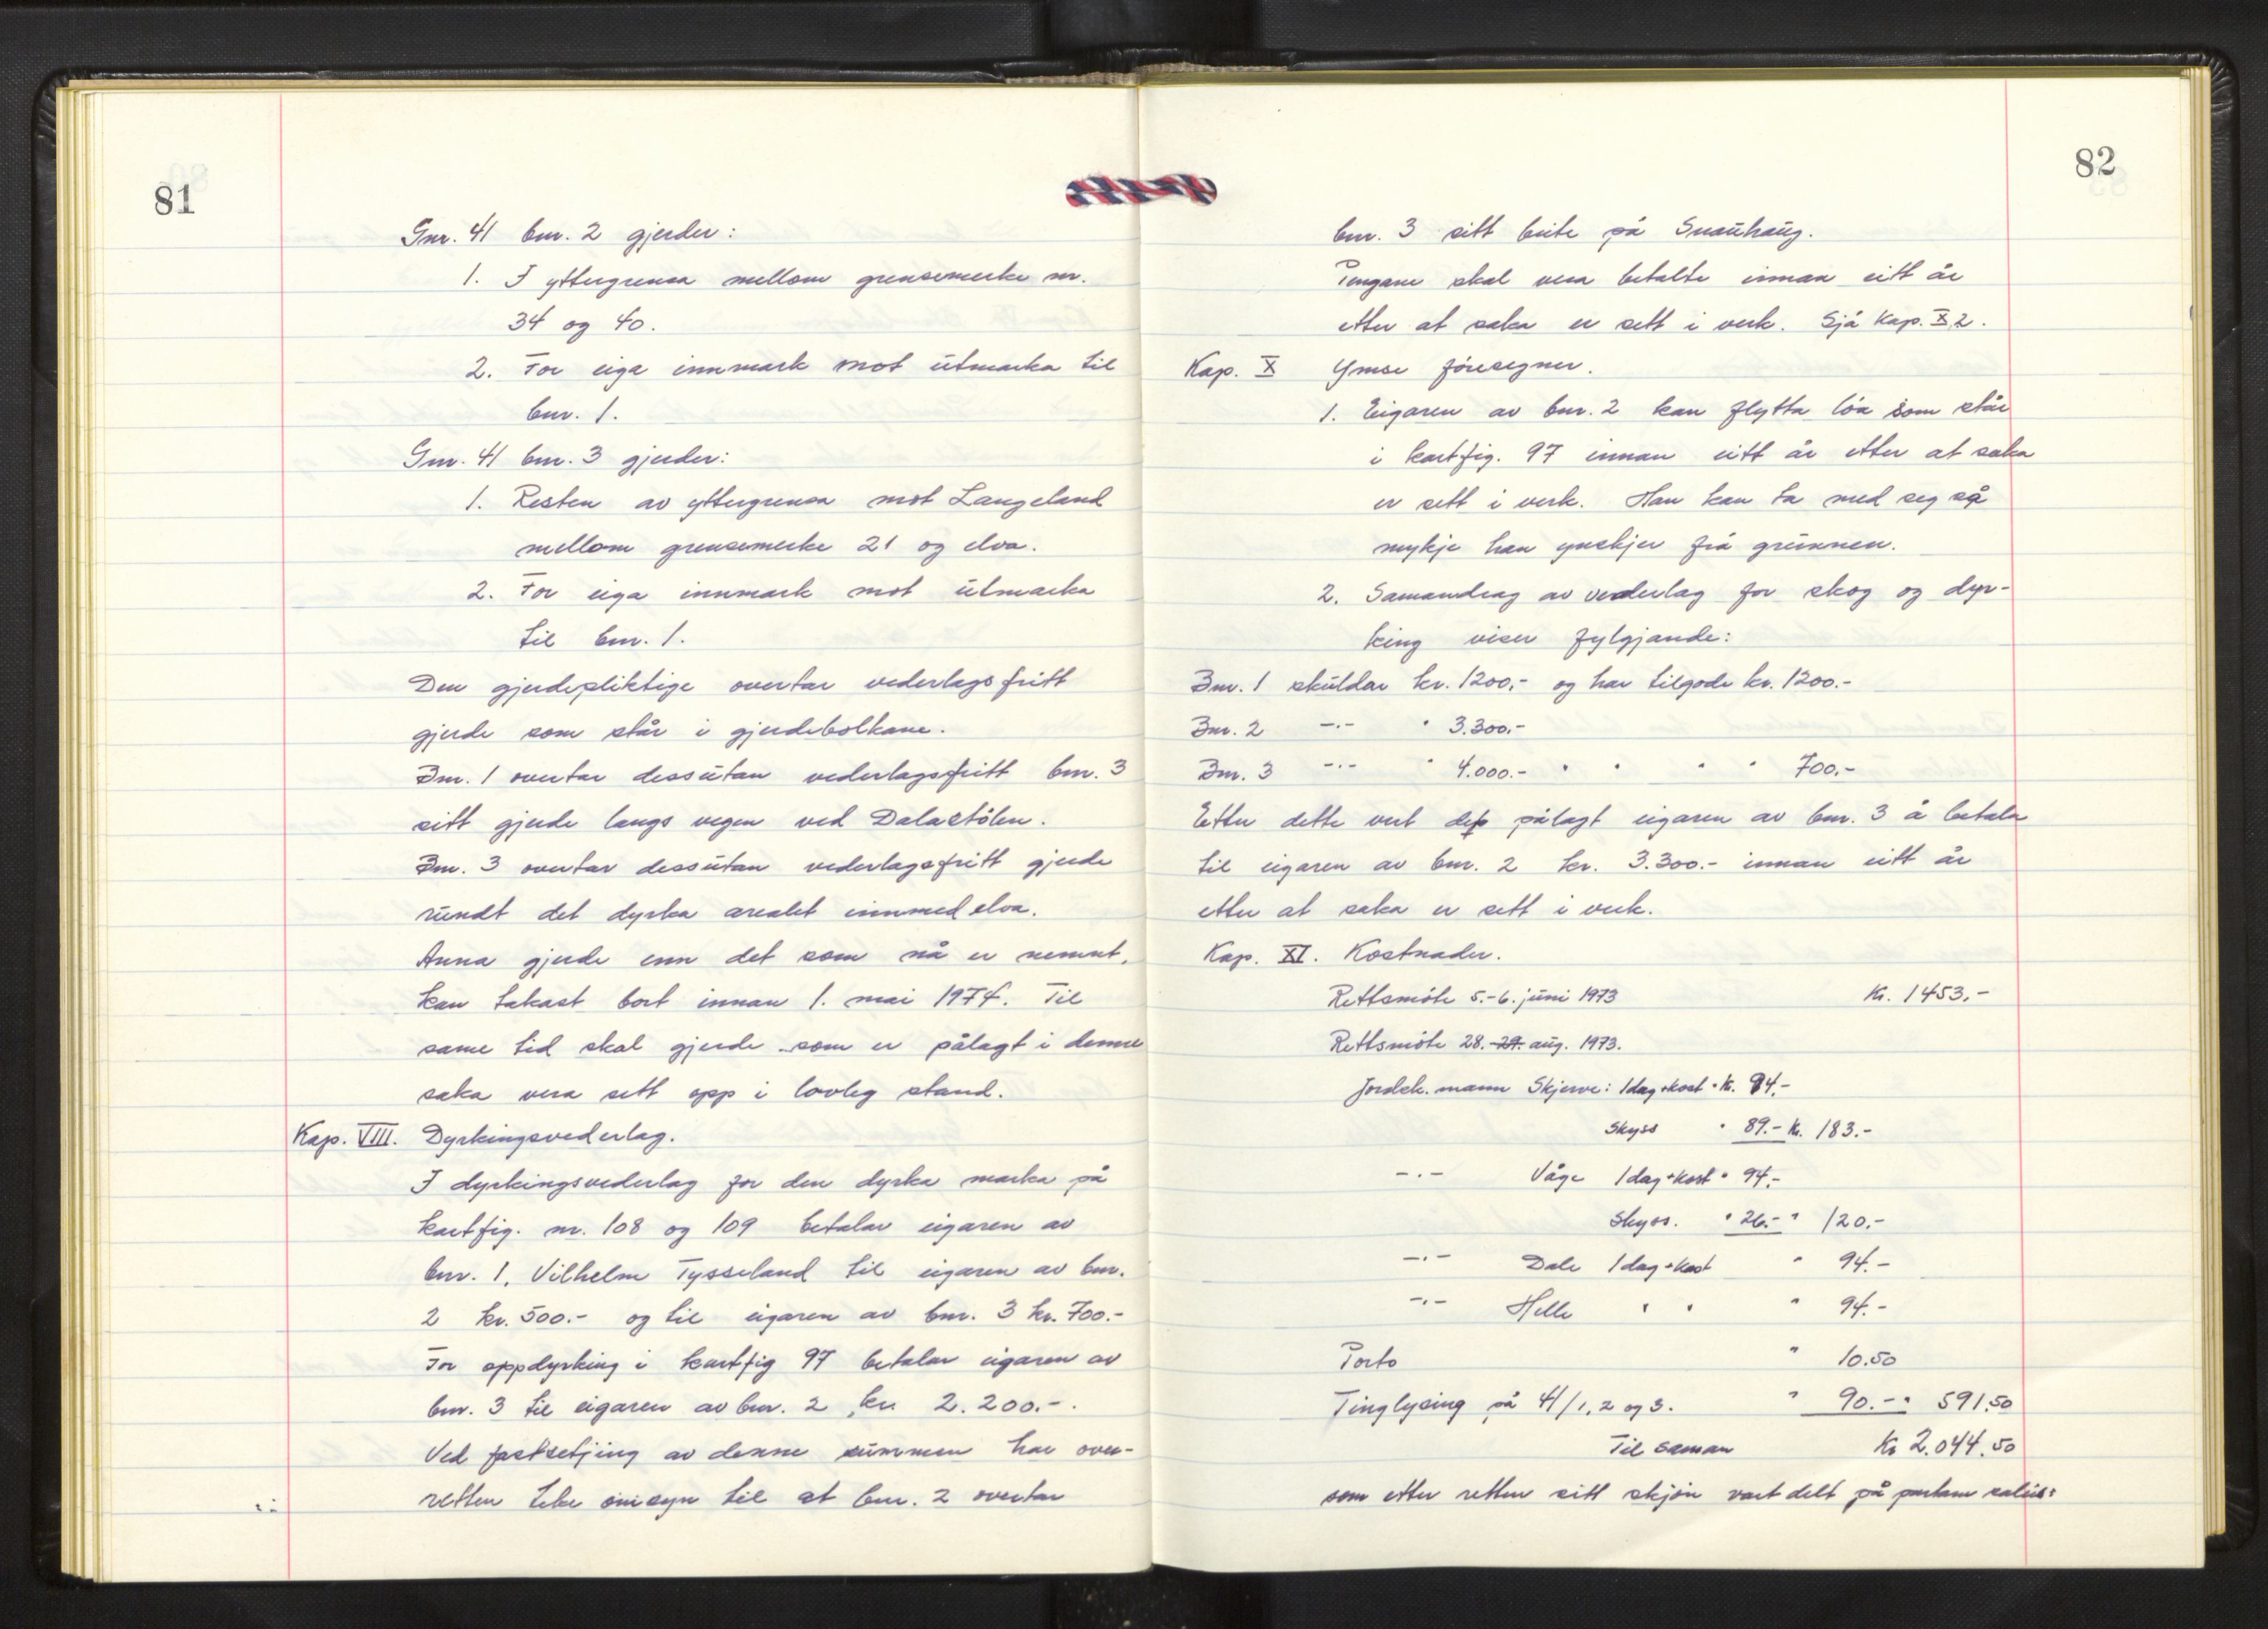 81
Gnr. 41 bnr. 2 gjerder:
1. I yttergrensa mellom grensemerke nr.
34 og 40.
2. For eiga innmark mot utmarka til
bnr. 1.
Gnr. 41 bnr. 3 gjerder:
1. Resten av yttergrensa mot Langeland
mellom grensemerke 21 og elva.
2. For eiga innmark mot utmarka
til bnr. 1.
Den gjerdepliktige overtar vederlagsfritt
gjerde som står i gjerdebolkane.
Bnr. 1 overtar dessutan vederlagsfritt bnr. 3
sitt gjerde langs vegen ved Dalastölen.
Bnr. 3 overtar dessutan vederlagsfritt gjerde
rundt det dyrka arealet innmed elva.
Anna gjerde enn det som nå er nemnt,
kan takast bort innan 1. mai 1974. Til
same tid skal gjerde som er pålagt i denne
saka vera sett opp i lovleg stand.
Kap. VIII. Dyrkingsvederlag.
I dyrkingsvederlag for den dyrka marka på
kartfig. nr. 108 og 109 betalar eigaren av
bnr. 1, Vilhelm Tysseland til eigaren av bnr.
2 kr. 500.- og til eigaren av bnr. 3 kr. 700.-
For oppdyrking i kartfig 97 betalar eigaren av
bnr. 3 til eigaren av bnr. 2 kr. 2.200.-.
Ved fastsetjing av denne summen har over-
retten teke omsyn til at bnr. 2 overtar
82
bnr. 3 sitt beite på Snauhaug.
Pengane skal vera betalte innan eitt år
etter at saka er sett i verk. Sjå Kap. X 2.
Kap. X Ymse föresegner.
1. Eigaren av bnr. 2 kan flytta löa som står
i kartfig. 97 innan eitt år etter at saka
er sett i verk. Han kan ta med seg så
mykje han ynskjer frå grunnen.
2. Samandrag av vederlag for skog og dyr-
king viser fylgjande:
Bnr. 1 skuldar kr. 1200,- og har tilgode kr. 1200.-
Bnr. 2 -.- " 3.300.-
Bnr. 3 -.- " 4.000.- " " " " 700,-
Etter dette vert det pålagt eigaren av bnr. 3 å betala
til eigaren av bnr. 2 kr. 3.300.- innan eitt år
etter at saka er sett i verk.
Kap. XI. Kostnader.
Rettsmöte 5.-6. juni 1973 Kr. 1453,-
Rettsmöte 28.-29. aug. 1973.
Jordsk. mann Skjerve: 1dag+kost " Kr. 94,-
Skyss " 89.- Kr. 183.-
-.- Våge 1dag+kost " 94,-
Skyss. " 26.- " 120.-
-.- Dale 1dag+kost " 94.-
-.- Helle " " " 94.-
Porto " 10.50
Tinglysing på 41/1, 2 og 3. " 90.- " 591,50
Til saman Kr 2.044,50
som etter retten sitt skjön vart delt på partane salis: